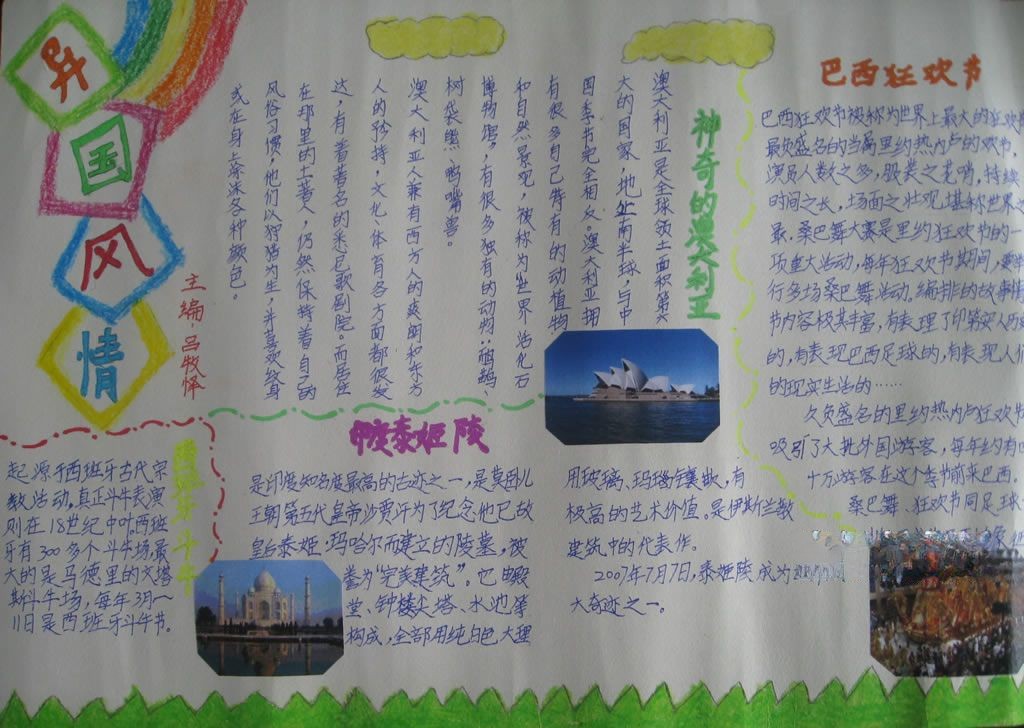 异国风情
主编:吕牧怿
神奇的澳大利亚
澳大利亚是全球领土面积第六
大的国家,地处南半球,与中
国季节完全相反。澳大利亚拥
有很多自己特有的动植物
和自然景观,被称为世界活化石
博物馆,有很多独有的动物:鸸鹋、
树袋熊、鸭嘴兽。
澳大利亚人兼有西方人的爽朗和东方
人的矜持,文化、体育各方面都很发
达,有着著名的悉尼歌剧院。而居住
在那里的土著人,仍然保持着自己的
风俗习惯,他们以狩猎为生,并喜欢纹身
或在身上涂抹各种颜色。
巴西狂欢节
巴西狂欢节被称为世界上最大的狂欢
最负盛名的当属里约热内卢的欢节。
演员人数之多,服装之花哨,持续
时间之长,场面之壮观,堪称世界之
最。桑巴舞大赛是里约狂欢节的一
项重大活动,每年狂欢节期间,要举
行多场桑巴舞活动。编排的故事情
节内容极其丰富,有表理了印第安人历史
的,有表现巴西足球的,有表现人们
的现实生活的……
久负盛名的里约热内卢狂欢节
吸引了大批外国游客,每年约有四
十万游客在这个季节前来巴西。
桑巴舞、狂欢节同足球
斗牛
起源于西班牙古代宗
教活动,真正斗牛表演
则在18世纪中叶。西班
牙有300多个斗牛场最
大的是马德里的文塔
斯斗牛场,每年3月—
11日是西班牙斗牛节。
泰姬陵
是印度知名度最高的古迹之一,是莫卧儿
王朝第五代皇帝沙贾汗为了纪念他已故
皇后泰姬·玛哈尔而建立的陵墓,被
誉为“完美建筑”。它由殿
堂、钟楼尖塔、水池等
构成,全部用纯白色大理
用玻璃、玛瑙镶嵌,有
极高的艺术价值。是伊斯兰教
建筑中的代表作。
2007年7月7日,泰姬陵成为
大奇迹之一。